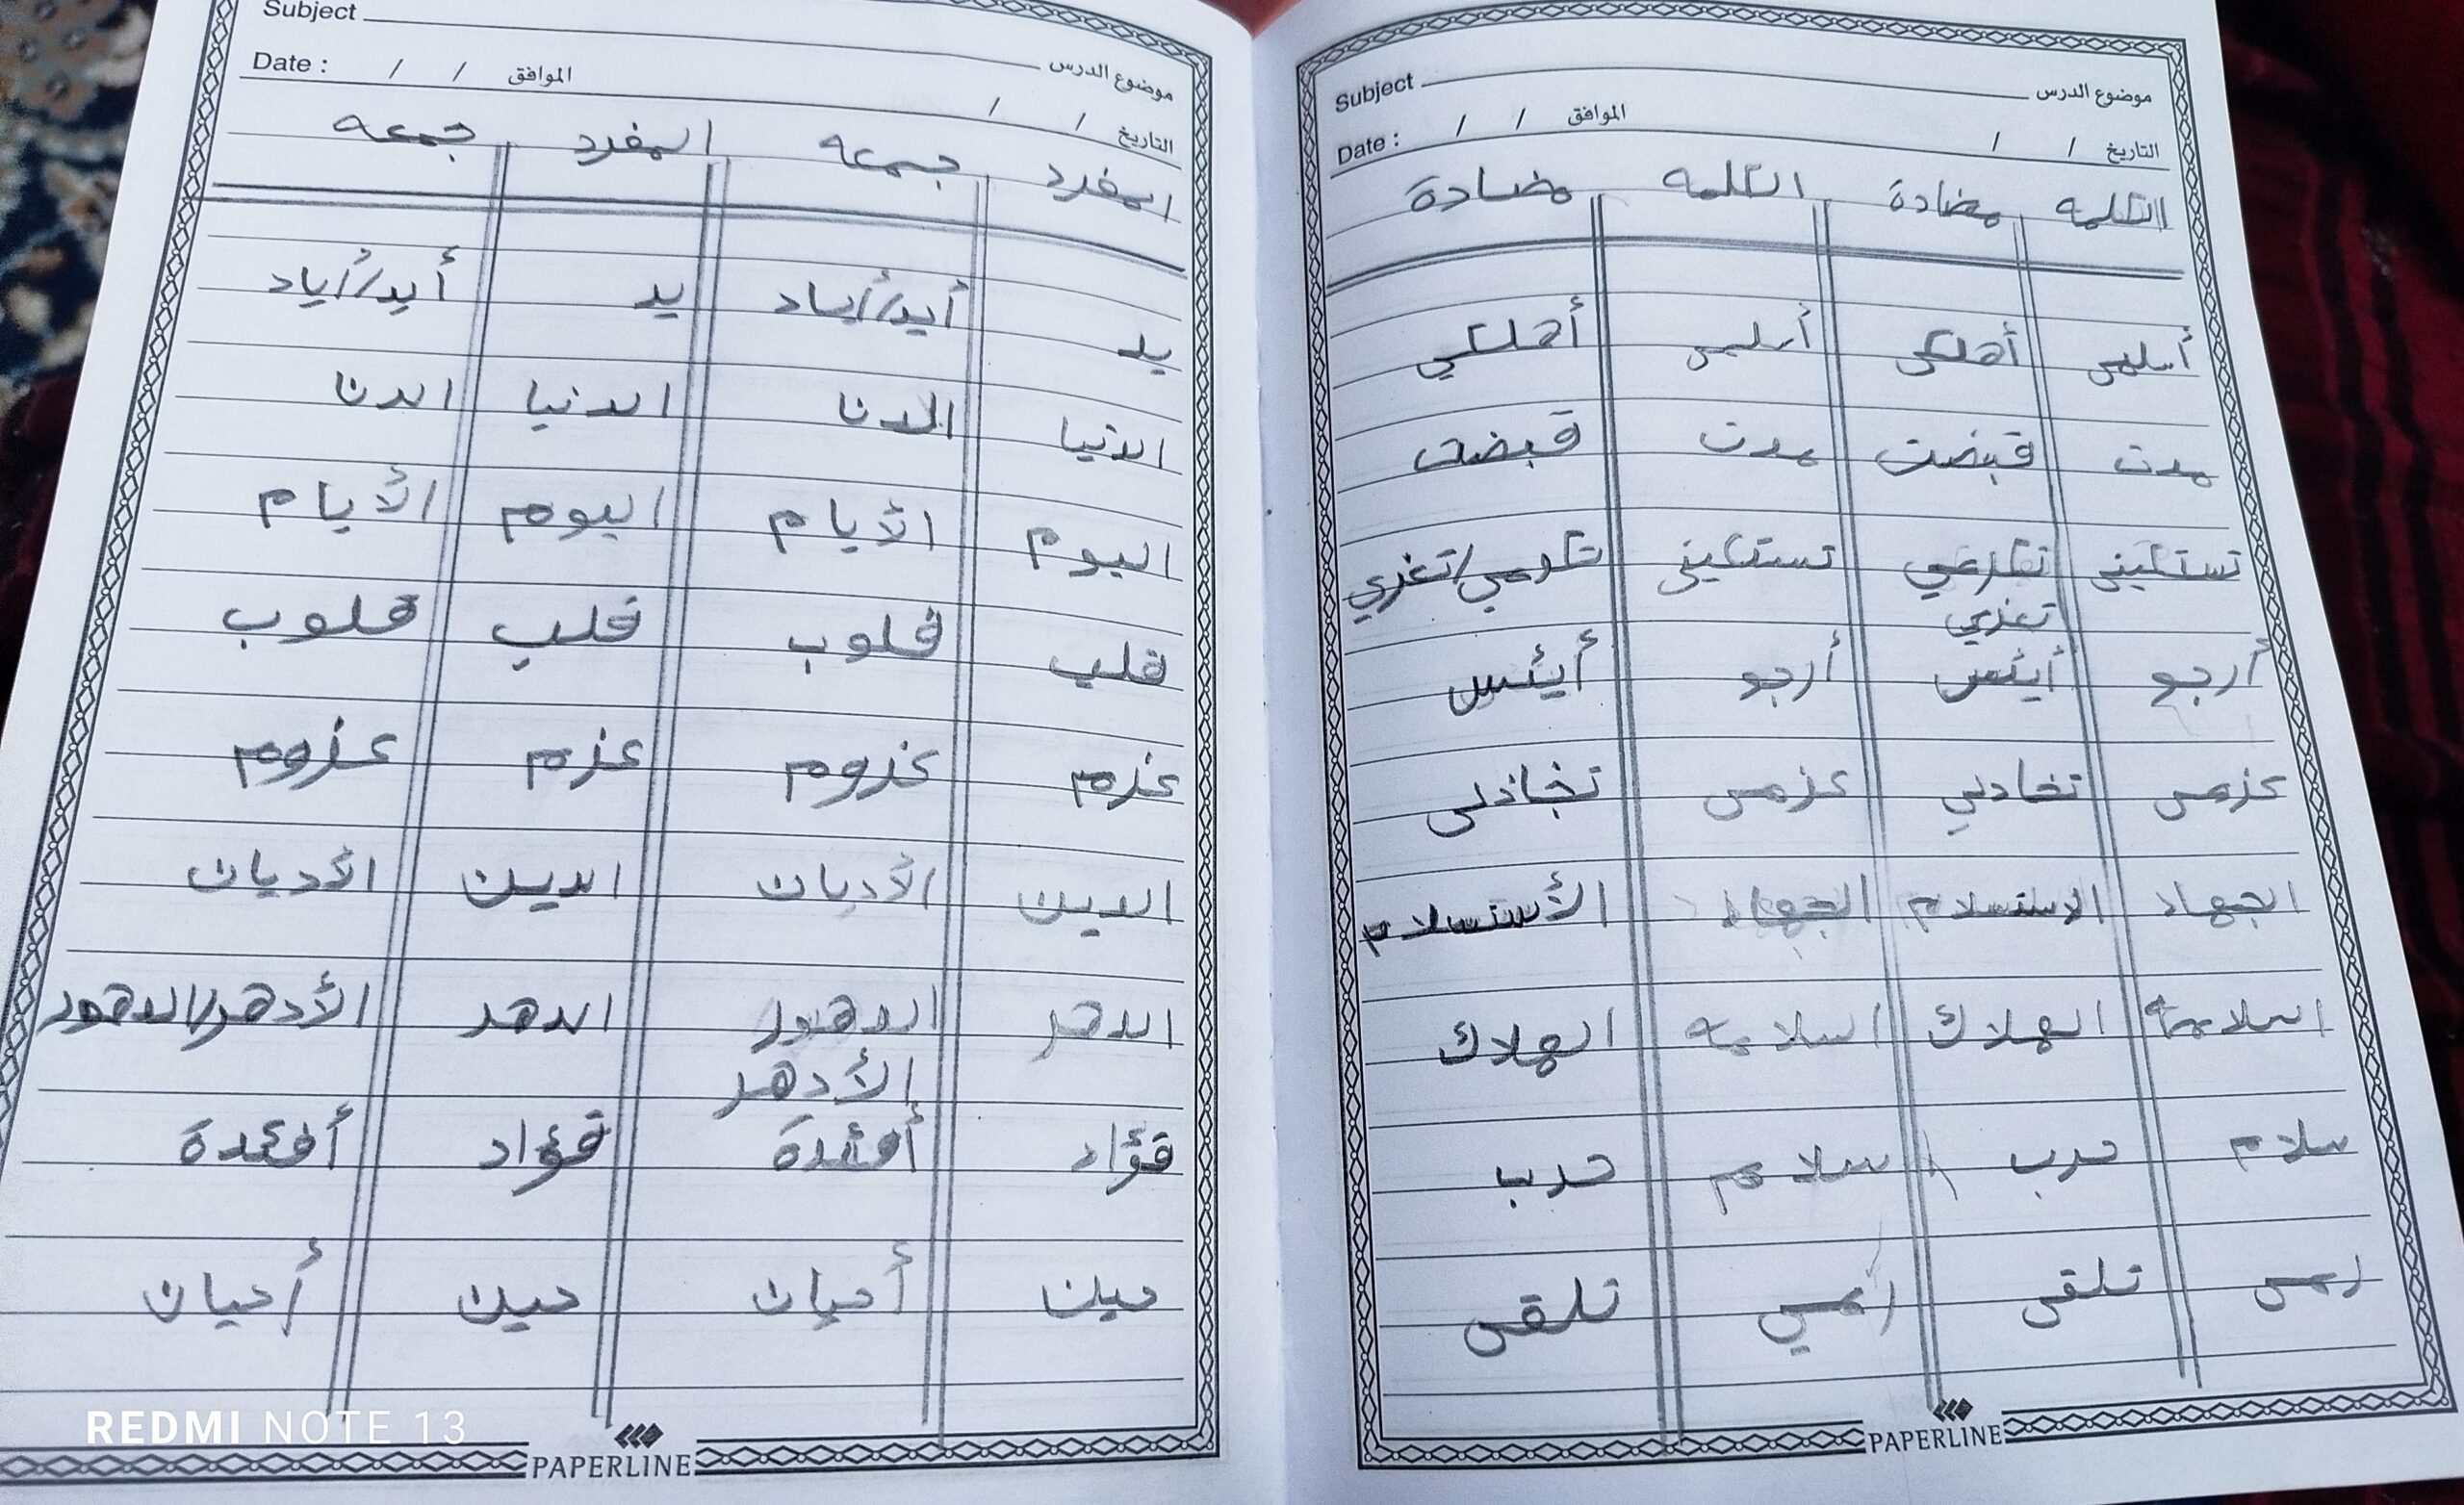 Subject موضوع الدرس
Date : / / الموافق / / التاريخ
الكلمه مضادة الكلمه مضادة
أسلمى أهلكى أسلمى أهلكي
مدت قبضت مدت قبضت
تستكينى تكرهي تستكينى تكرهي/تغزي
تغزي
أرجو أيئس أرجو أيئس
عزمى تخاذلي عزمى تخاذلى
الجهاد الاستسلام الجهاد الأستسلام
السلامه الهلاك السلامه الهلاك
سلام حرب سلام حرب
تلقى تلقى
PAPERLINE
Subject موضوع الدرس
Date : / / الموافق / / التاريخ
المفرد جمعه المفرد جمعه
يد أيد/أياد يد أيد/أياد
الدنيا الدنا الدنيا الدنا
اليوم الأيام اليوم الأيام
قلب قلوب قلب قلوب
عزم عزوم عزم عزوم
الدين الأديان الدين الأديان
الدهر الدهور الدهر الأدهر/الدهور
الأدهر
فؤاد أفئدة فؤاد أفئدة
حين أحيان حين أحيان
PAPERLINE
REDMI NOTE 13